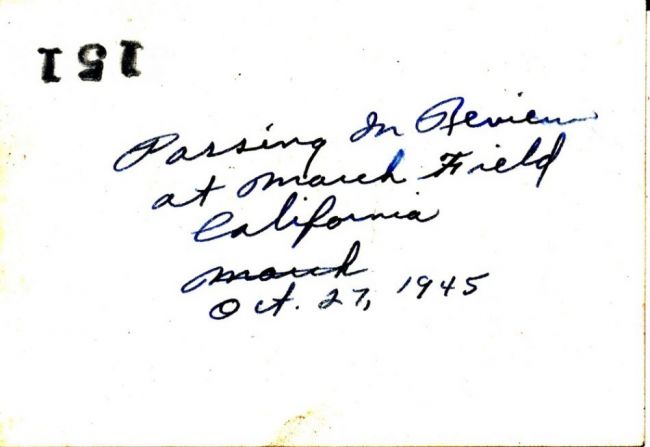 151
Passing In Review
at March Field
California
March
Oct. 27, 1945